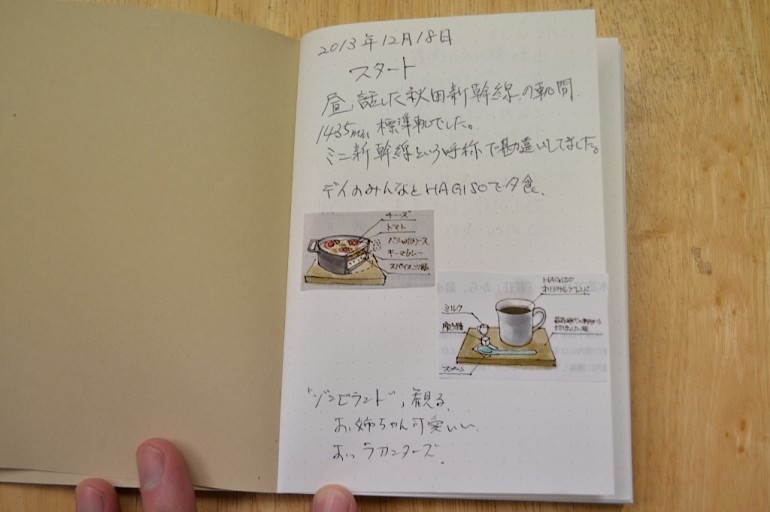 2013年12月18日
スタート
昼、話した秋田新幹線の軌間
1435mm、標準軌でした。
ミニ新幹線という呼称で勘違いしてました。
デイのみんなとHAGISOで夕食、
チーズ
トマト
キーマカレー
HAGISO
オリジナルブレンド
ミルク
スプーン
"ゾンビランド"、観る。
お姉ちゃん可愛いい